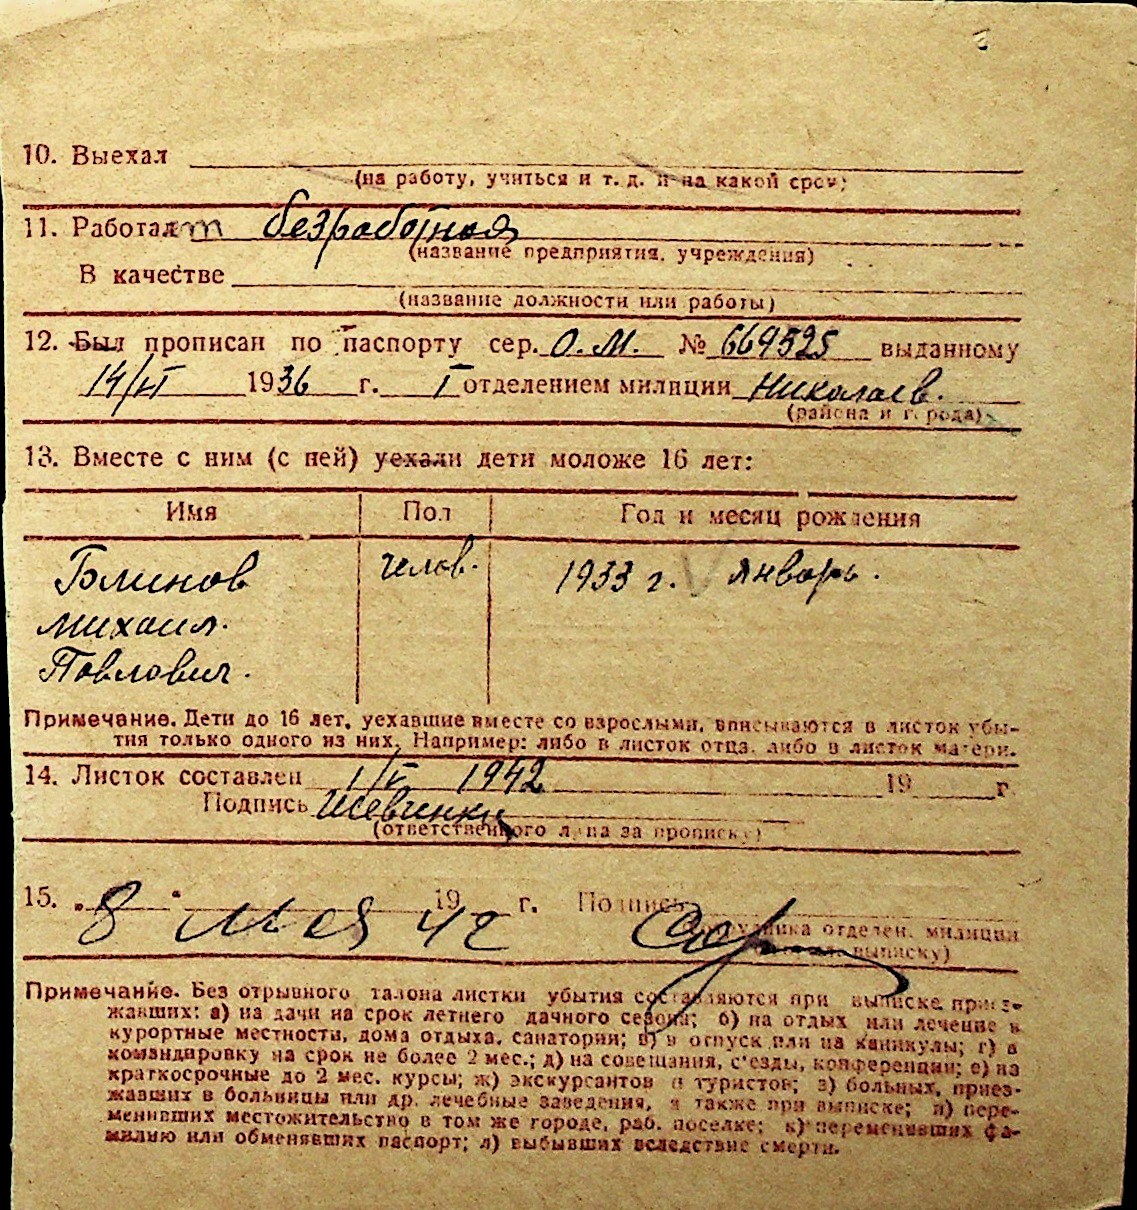 10. Выехал
(на работу, учиться и т. д. и на какой срок)
11. Работает безработная
(название предприятия, учреждения)
В качестве
(название должности или работы)
12. Был прописан по паспорту сер. О.М. № 669525 выданному
14/VI 1936 г. I отделением милиции Николаев.
(района и города)
13. Вместе с ним (с ней) уехали дети моложе 16 лет:
Имя Пол Год и месяц рождения
Блинов челов. 1933 г. январь.
Михаил.
Павлович.
Примечание. Дети до 16 лет, уехавшие вместе со взрослыми, вписываются в листок убы-
тия только одного из них. Например: либо в листок отца, либо в листок матери.
14. Листок составлен 1942 19 г
Подпись Шевченко
(ответственного лица за прописку)
15. „8" мая 42 19 г. Подпись
сотрудника отделен. милиции
выписку)
Примечание. Без отрывного талона листки убытия составляются при выписке приез-
жавших: а) на дачи на срок летнего дачного сезона; б) на отдых или лечение в
курортные местности, дома отдыха, санатории; в) в отпуск или на каникулы; г) в
командировку на срок не более 2 мес.; д) на совещания, с'езды, конференции; е) на
краткосрочные до 2 мес. курсы; ж) экскурсантов и туристов; з) больных, приез-
жавших в больницы или др. лечебные заведения, а также при выписке; и) пере-
менивших местожительство в том же городе, раб. поселке; к) переменивших фа-
милию или обменявших паспорт; л) выбывших вследствие смерти.